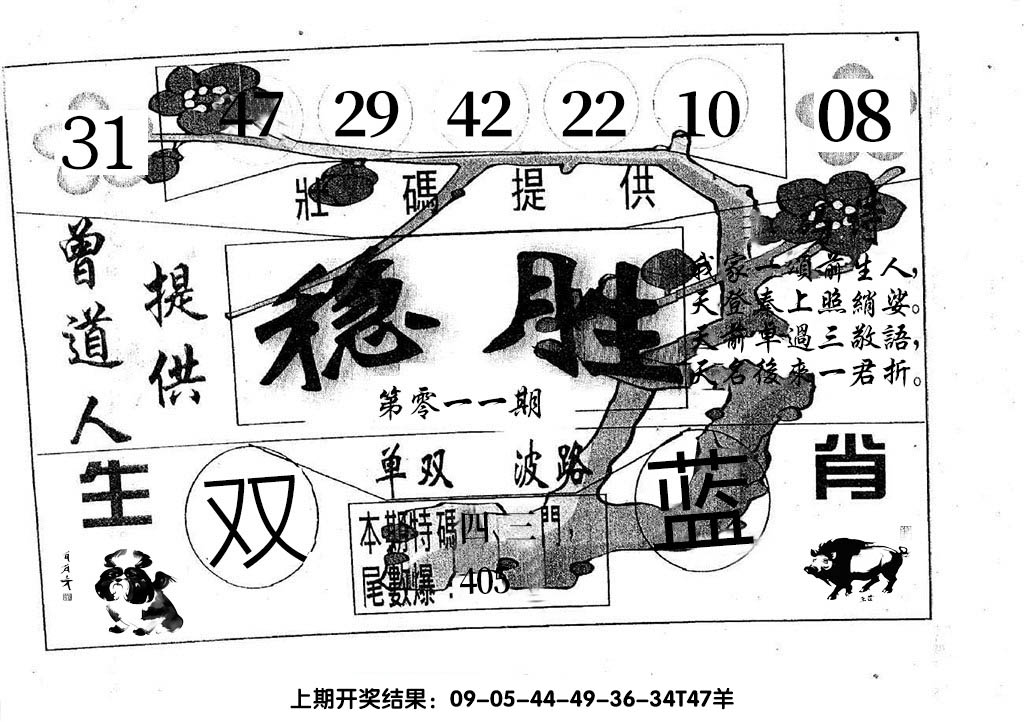 31 47 29 42 22 10 08
壯碼提供
曾道人
提供
稳胜
第零一一期
我家一頌前生人,
天登奏上照綃娑。
天前單過三敬語,
天名後來一君折。
生肖
单双 波路
双
蓝
本期特碼四、三門,
尾數爆:405
上期开奖结果:09-05-44-49-36-34T47羊